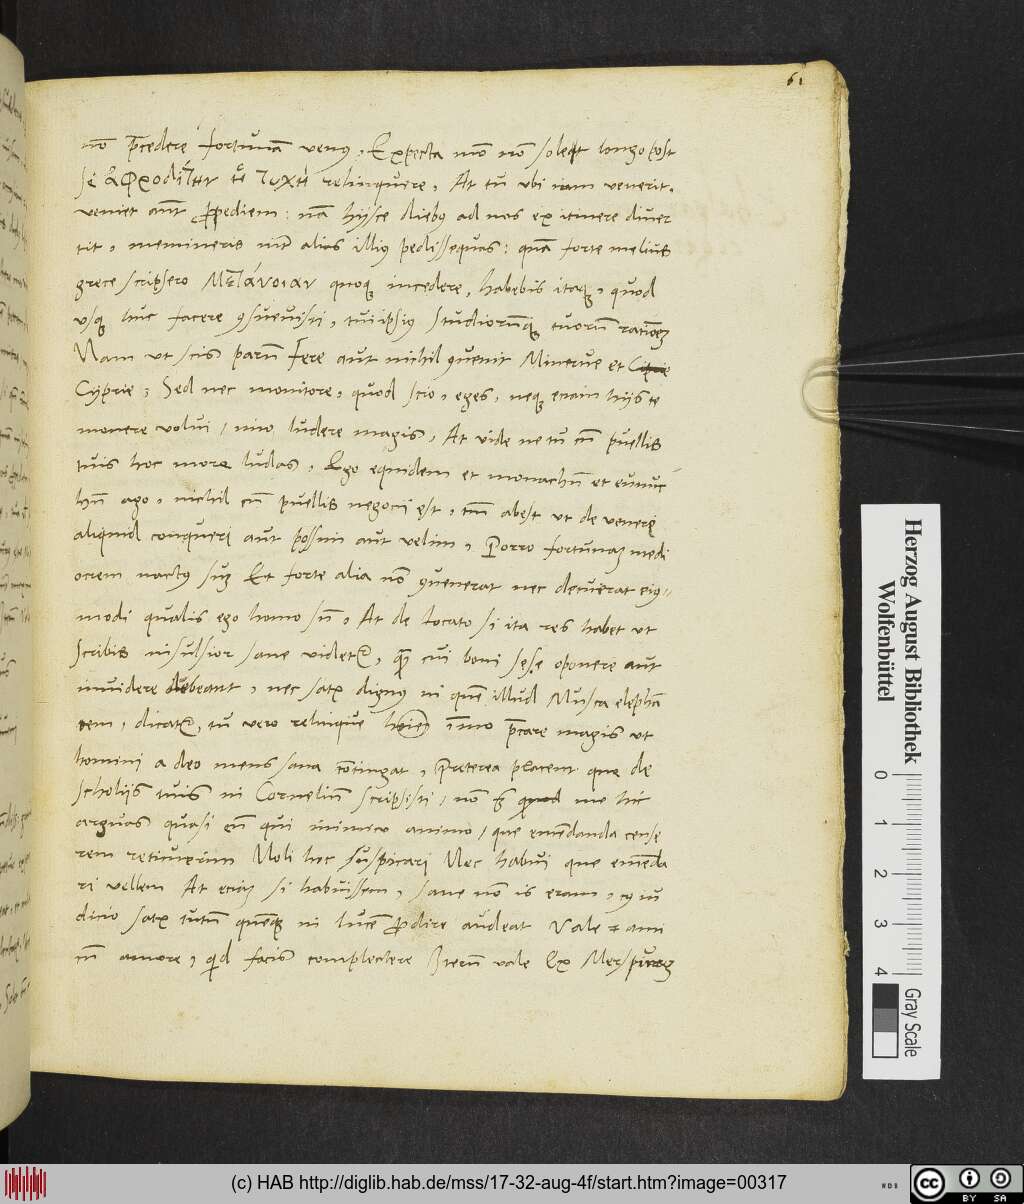 61
nō p̄cedere fortunā venus, Expecta mō nō solet longo post
sē ἀφροδίτην ἡ τύχη relinquere, At tu ubi iam venerit,
veniet aūt ꝓpediem: nā hijsce diebꝰ ad nos ex itinere diver
tit, memineris alias illiꝰ pedissequas: quā forte melius
grece scripsero Μετάνοιαν quoqꝫ incedere, habebis itaqꝫ, quod
usqꝫ huc facere ꝯsuevisti, tui ipsiꝰ studiorūqꝫ tuorū rationē
Nam ut scis parū fere aut nichil ꝯvenit Minerve et
Cyprie, Sed nec monitore, quod scio, eges, neqꝫ eciam hijs te
monere volui, imo ludere magis, At vide ne tu cū puellis
tuis hoc more ludas, Ego equidem et monachū et eunuc
hū ago, nichil cū puellis negocij est, tm̄ abest ut de venere
aliquid conqueri aut possim aut velim, Porro fortunaꝫ medi
ocrem nactꝰ suꝫ Et forte alia nō ꝯvenerat nec decuerat eiꝰ-
modi qualis ego homo sū, At de Locato si ita res habet ut
scribis insulsior sane videtꝛ, qꝫ cui boni sese oponere aut
invidere debeant, nec satꝭ dignꝰ in quē illud Musca elephā
tem, dicatꝛ, tu vero relinque īmo p̄care magis ut
homini a deo mens sana cōtingat, Preterea placent que de
scholijs tuis in Corneliū scripsisti, nō qꝫ quod me hic
arguas quasi eū qui inimico animo, que emēdanda cense
rem reticuerim Noli hoc suspicari Nec habui que emēda
ri vellem At eciaꝫ si habuissem, sane nō is eram, cꝰ iu
dicio satꝭ tutū quēqꝫ in lucē ꝓdire audeat Vale et ami
cū amore, qd facis complectere Iterū vale Ex Merspurg
Herzog August Bibliothek
Wolfenbüttel
0 1 2 3 4
Gray Scale
(c) HAB http://diglib.hab.de/mss/17-32-aug-4f/start.htm?image=00317
WDB
cc BY SA